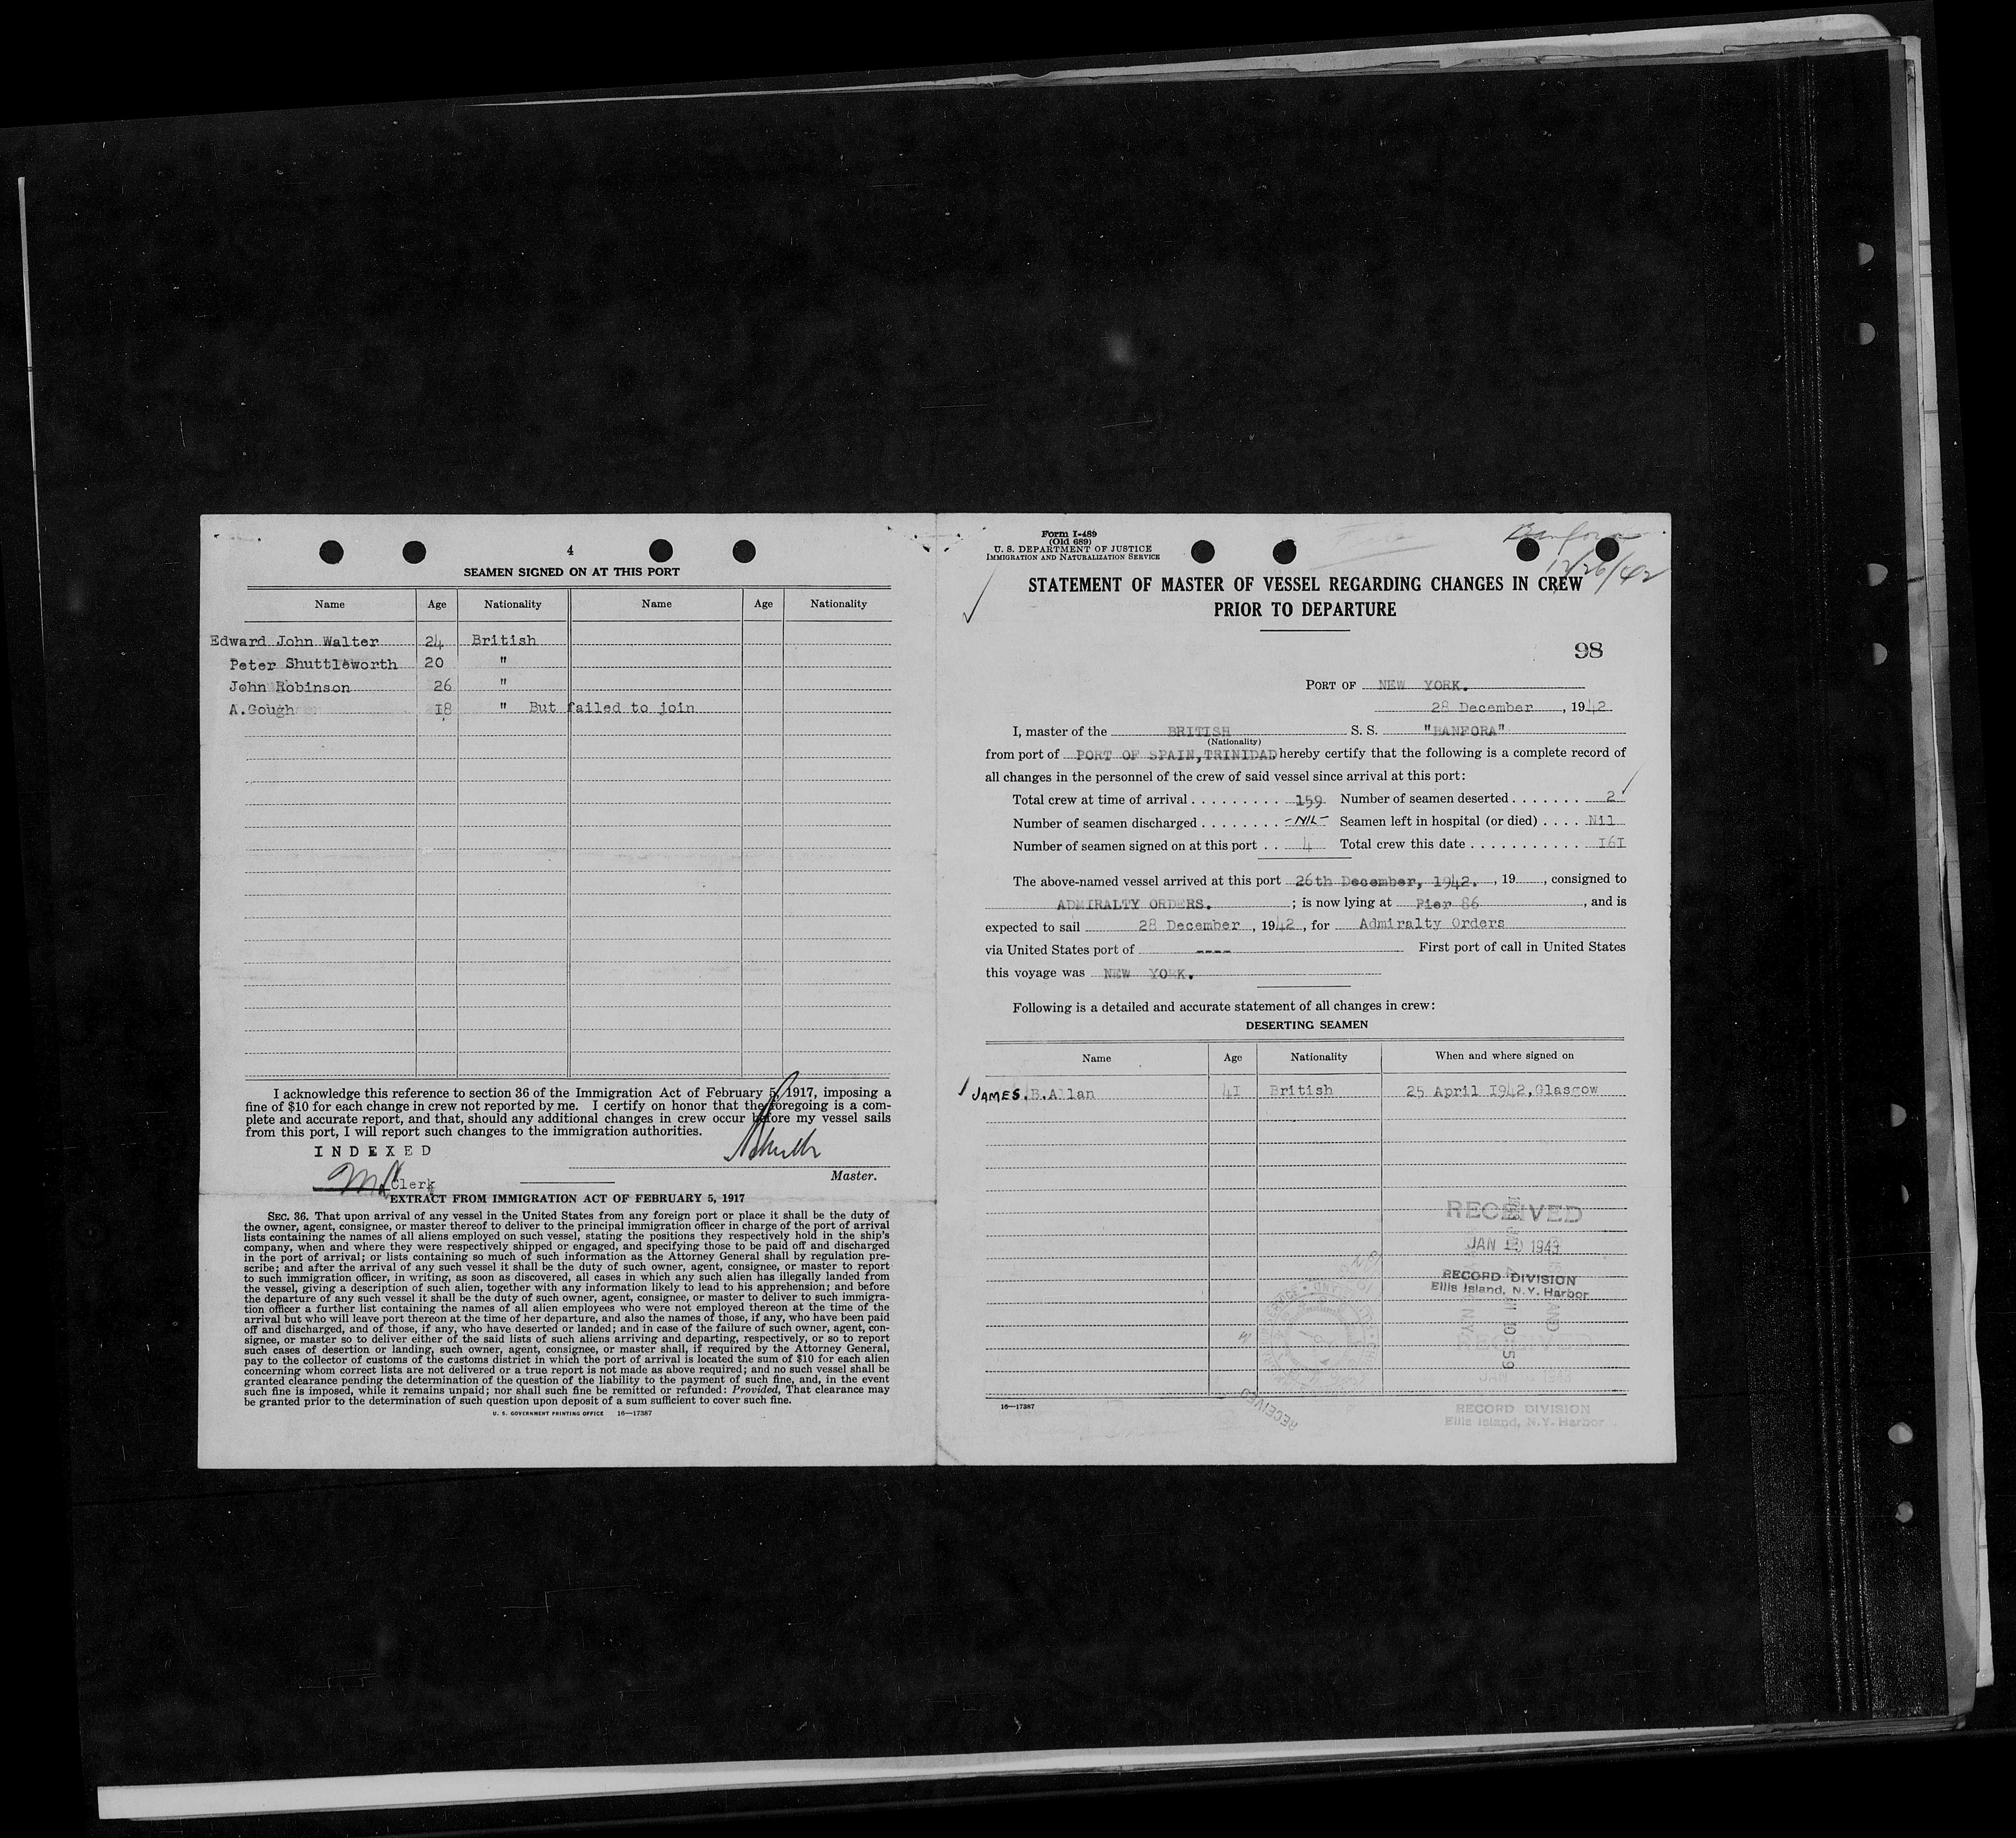 4
SEAMEN SIGNED ON AT THIS PORT
Name Age Nationality Name Age Nationality
Edward John Walter 24 British
Peter Shuttleworth 20 "
John Robinson 26 "
A.Gough 18 " But failed to join
I acknowledge this reference to section 36 of the Immigration Act of February 5, 1917, imposing a
fine of $10 for each change in crew not reported by me. I certify on honor that the foregoing is a com-
plete and accurate report, and that, should any additional changes in crew occur before my vessel sails
from this port, I will report such changes to the immigration authorities.
INDEXED
Master.
Clerk
EXTRACT FROM IMMIGRATION ACT OF FEBRUARY 5, 1917
SEC. 36. That upon arrival of any vessel in the United States from any foreign port or place it shall be the duty of
the owner, agent, consignee, or master thereof to deliver to the principal immigration officer in charge of the port of arrival
lists containing the names of all aliens employed on such vessel, stating the positions they respectively hold in the ship's
company, when and where they were respectively shipped or engaged, and specifying those to be paid off and discharged
in the port of arrival; or lists containing so much of such information as the Attorney General shall by regulation pre-
scribe; and after the arrival of any such vessel it shall be the duty of such owner, agent, consignee, or master to report
to such immigration officer, in writing, as soon as discovered, all cases in which any such alien has illegally landed from
the vessel, giving a description of such alien, together with any information likely to lead to his apprehension; and before
the departure of any such vessel it shall be the duty of such owner, agent, consignee, or master to deliver to such immigra-
tion officer a further list containing the names of all alien employees who were not employed thereon at the time of the
arrival but who will leave port thereon at the time of her departure, and also the names of those, if any, who have been paid
off and discharged, and of those, if any, who have deserted or landed; and in case of the failure of such owner, agent, con-
signee, or master so to deliver either of the said lists of such aliens arriving and departing, respectively, or so to report
such cases of desertion or landing, such owner, agent, consignee, or master shall, if required by the Attorney General,
pay to the collector of customs of the customs district in which the port of arrival is located the sum of $10 for each alien
concerning whom correct lists are not delivered or a true report is not made as above required; and no such vessel shall be
granted clearance pending the determination of the question of the liability to the payment of such fine, and, in the event
such fine is imposed, while it remains unpaid; nor shall such fine be remitted or refunded: Provided, That clearance may
be granted prior to the determination of such question upon deposit of a sum sufficient to cover such fine.
U. S. GOVERNMENT PRINTING OFFICE 16—17387
Form I-489
(Old 689)
U. S. DEPARTMENT OF JUSTICE
IMMIGRATION AND NATURALIZATION SERVICE
Banfora
12/26/42
STATEMENT OF MASTER OF VESSEL REGARDING CHANGES IN CREW
PRIOR TO DEPARTURE
98
PORT OF NEW YORK.
28 December, 1942
I, master of the BRITISH S. S. "BANFORA"
(Nationality)
from port of PORT OF SPAIN, TRINIDAD hereby certify that the following is a complete record of
all changes in the personnel of the crew of said vessel since arrival at this port:
Total crew at time of arrival 159 Number of seamen deserted 2
Number of seamen discharged -NIL- Seamen left in hospital (or died) Nil
Number of seamen signed on at this port 4 Total crew this date 161
The above-named vessel arrived at this port 26th December, 1942. , 19 , consigned to
ADMIRALTY ORDERS. ; is now lying at Pier 86 , and is
expected to sail 28 December, 1942, for Admiralty Orders
via United States port of ---- First port of call in United States
this voyage was NEW YORK.
Following is a detailed and accurate statement of all changes in crew:
DESERTING SEAMEN
Name Age Nationality When and where signed on
JAMES.B.Allan 41 British 25 April 1942,Glasgow
RECEIVED
JAN 10 1943
RECORD DIVISION
Ellis Island, N.Y. Harbor
10 59
RECEIVED
RECORD DIVISION
Ellis Island, N.Y. Harbor
RECEIVED
16—17387